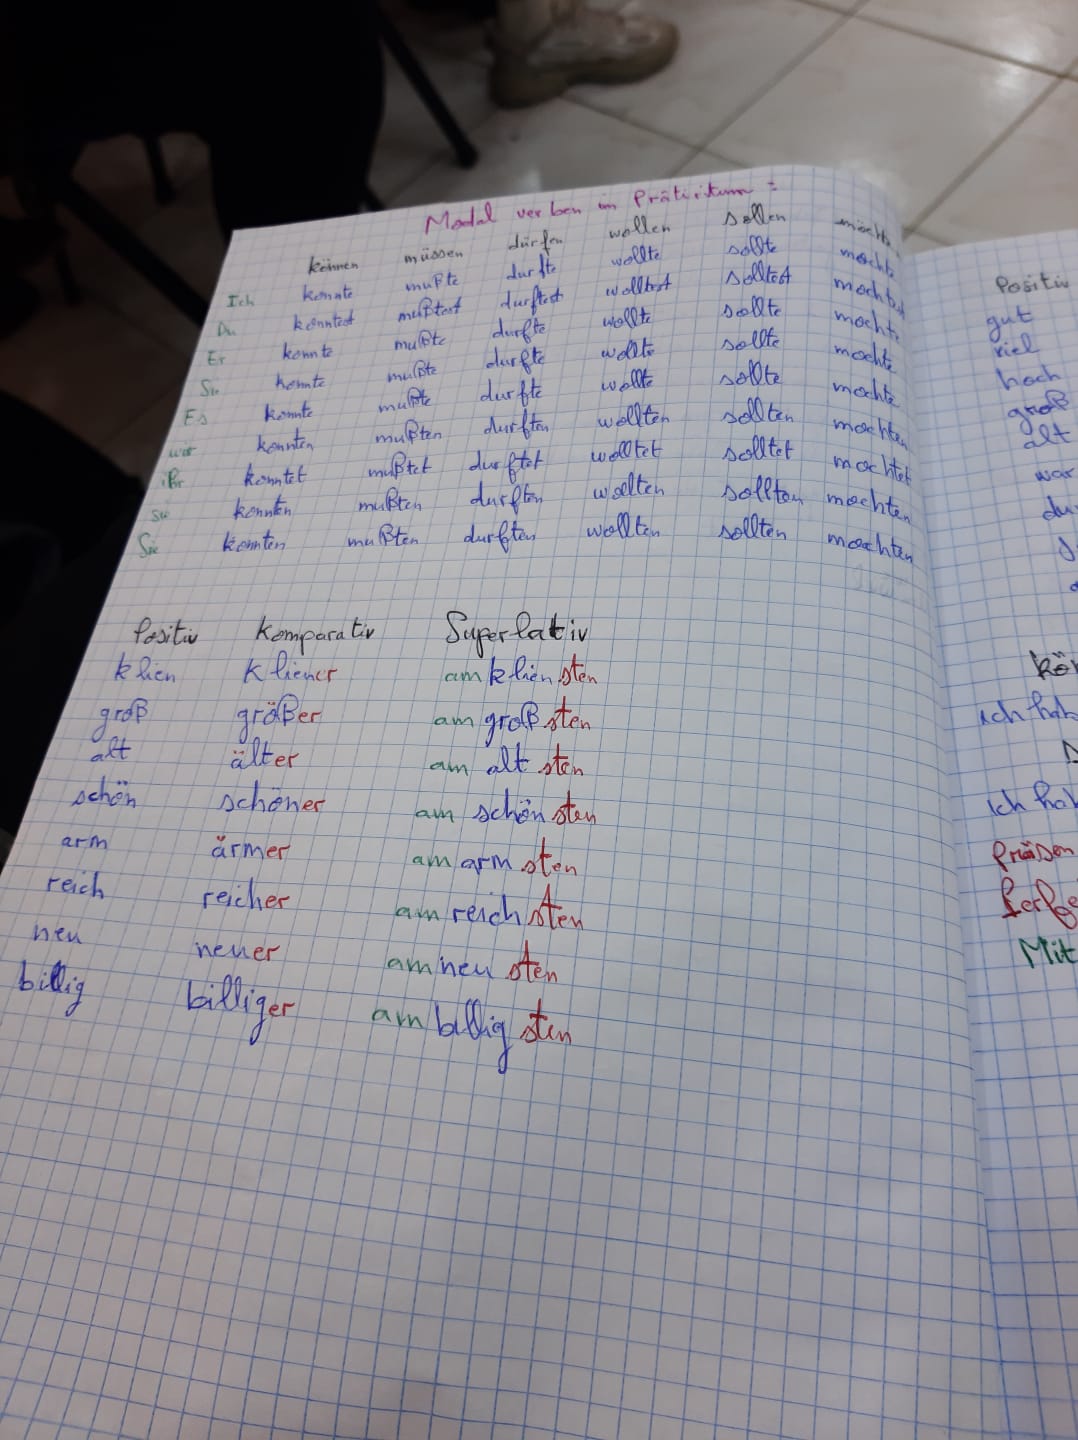 Modal verben im Prätiritum :
können müssen dürfen wollen sollen möchte
Ich konnte mußte durfte wollte sollte mochte
Du konntest mußtest durftest wolltest solltest mochtest
Er konnte mußte durfte wollte sollte mochte
Sie konnte mußte durfte wollte sollte mochte
Es konnte mußte durfte wollte sollte mochte
wir konnten mußten durften wollten sollten mochten
iHr konntet mußtet durftet wolltet solltet mochtet
sie konnten mußten durften wollten sollten mochten
Sie konnten mußten durften wollten sollten mochten
Positiv Komparativ Superlativ
klien kliener am klien sten
groß größer am groß sten
alt älter am alt sten
schön schöner am schön sten
arm ärmer am arm sten
reich reicher am reich sten
neu neuer am neu sten
billig billiger am billig sten
Positiv
gut
viel
hoch
groß
alt
war
du
kön
ich hab
Ich hab
Präsen
Perfe
Mit